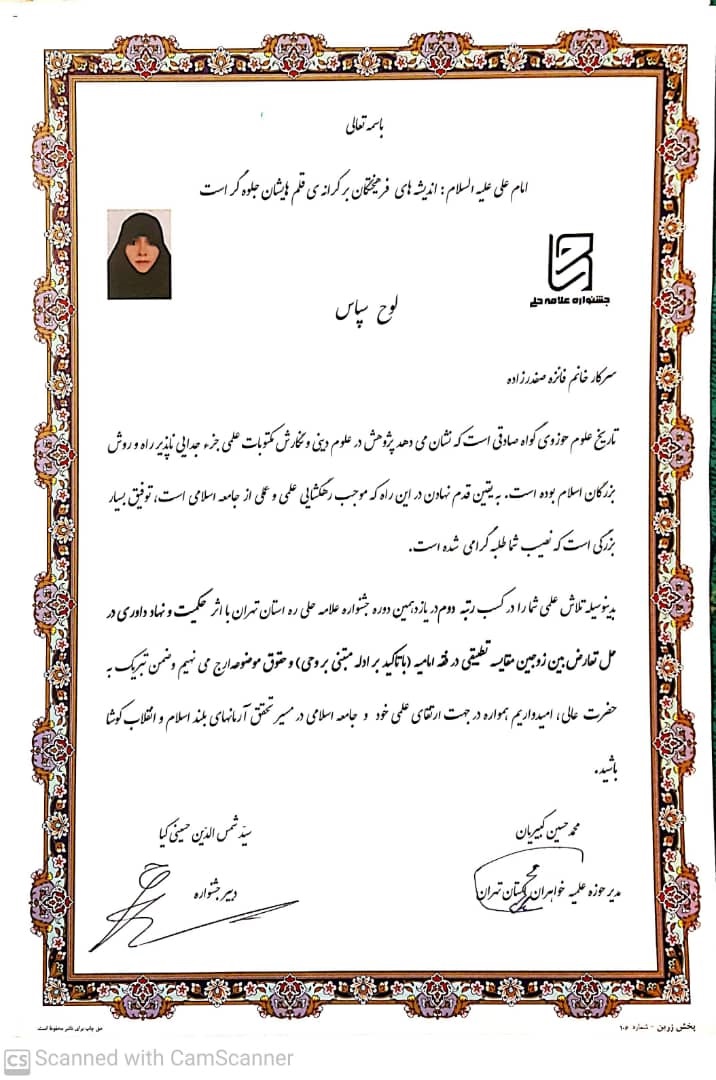 باسمه تعالی
امام علی علیه السلام : اندیشه های فرهیختگان بر کرانه ی قلم هایشان جلوه گر است
جشنواره علامه حلی
لوح سپاس
سرکار خانم فائزه صفدرزاده
تاریخ علوم حوزوی گواه صادقی است که نشان می دهد پژوهش در علوم دینی و نگارش مکتوبات علمی جزء جدایی ناپذیر راه و روش
بزرگان اسلام بوده است. به یقین قدم نهادن در این راه که موجب رهگشایی علمی و عملی از جامعه اسلامی است، توفیق بسیار
بزرگی است که نصیب شما طلبه گرامی شده است.
بدینوسیله تلاش علمی شما را در کسب رتبه دوم در یازدهمین دوره جشنواره علامه حلی ره استان تهران با اثر حکمیت و نهاد داوری در
حل تعارض بین زوجین مقایسه تطبیقی در فقه امامیه (با تاکید بر ادله مبتنی بر وحی) و حقوق موضوعه ارج می نهیم و ضمن تبریک به
حضرت عالی، امیدواریم همواره در جهت ارتقای علمی خود و جامعه اسلامی در مسیر تحقق آرمانهای بلند اسلام و انقلاب کوشا
باشید.
محمد حسین کبیریان
سید شمس الدین حسینی کیا
مدیر حوزه علمیه خواهران استان تهران
دبیر جشنواره
پخش زرین - شماره ۱۰۶
حق چاپ برای ناشر محفوظ است.
CS Scanned with CamScanner